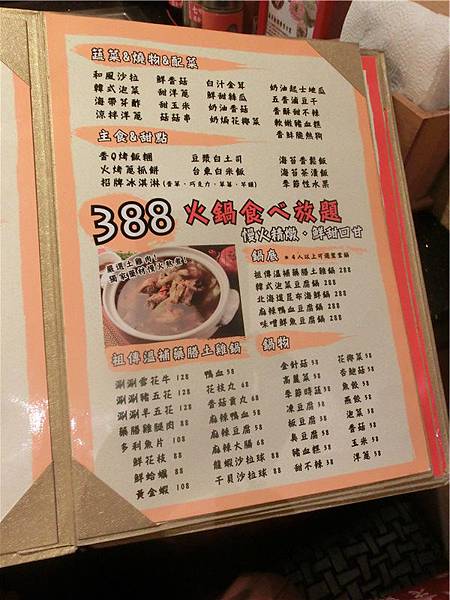 蔬菜&燒物&配菜
和風沙拉 鮮香菇 白汁金茸 奶油起士地瓜
韓式泡菜 甜洋蔥 鮮甜絲瓜 五香滷豆干
海帶芽酢 甜玉米 奶油香菇 香酥甜不辣
涼拌洋蔥 菇菇串 奶焗花椰菜 軟嫩豬血糕
香鮮脆熱狗
主食&甜點
香Q烤飯糰 豆漿白土司 海苔香鬆飯
火烤蔥抓餅 台東白米飯 海苔茶漬飯
招牌冰淇淋(香草、巧克力、草莓、芋頭) 季節性水果
388 火鍋食べ放題
慢火精燉、鮮甜回甘
嚴選土雞肉!
獨家藥材慢火熬煮!
鍋底 ※4人以上可選鴛鴦鍋
祖傳溫補藥膳土雞鍋 288
韓式泡菜豆腐鍋 288
北海道昆布海鮮鍋 288
麻辣鴨血豆腐鍋 288
味噌鮮魚豆腐鍋 288
祖傳溫補藥膳土雞鍋
涮涮雪花牛 128
涮涮豬五花 128
涮涮羊五花 128
藥膳雞腿肉 88
多利魚片 108
鮮花枝 88
鮮蛤蠣 88
黃金蝦 108
鴨血 58
花枝丸 68
香菇貢丸 68
麻辣鴨血 58
麻辣豆腐 58
麻辣大腸 68
龍蝦沙拉球 88
干貝沙拉球 88
鍋物
金針菇 58
高麗菜 58
季節時蔬 58
凍豆腐 58
板豆腐 58
臭豆腐 58
豬血糕 58
甜不辣 58
花椰菜 58
杏鮑菇 58
魚餃 58
燕餃 58
泡菜 58
香菇 58
玉米 58
洋蔥 58